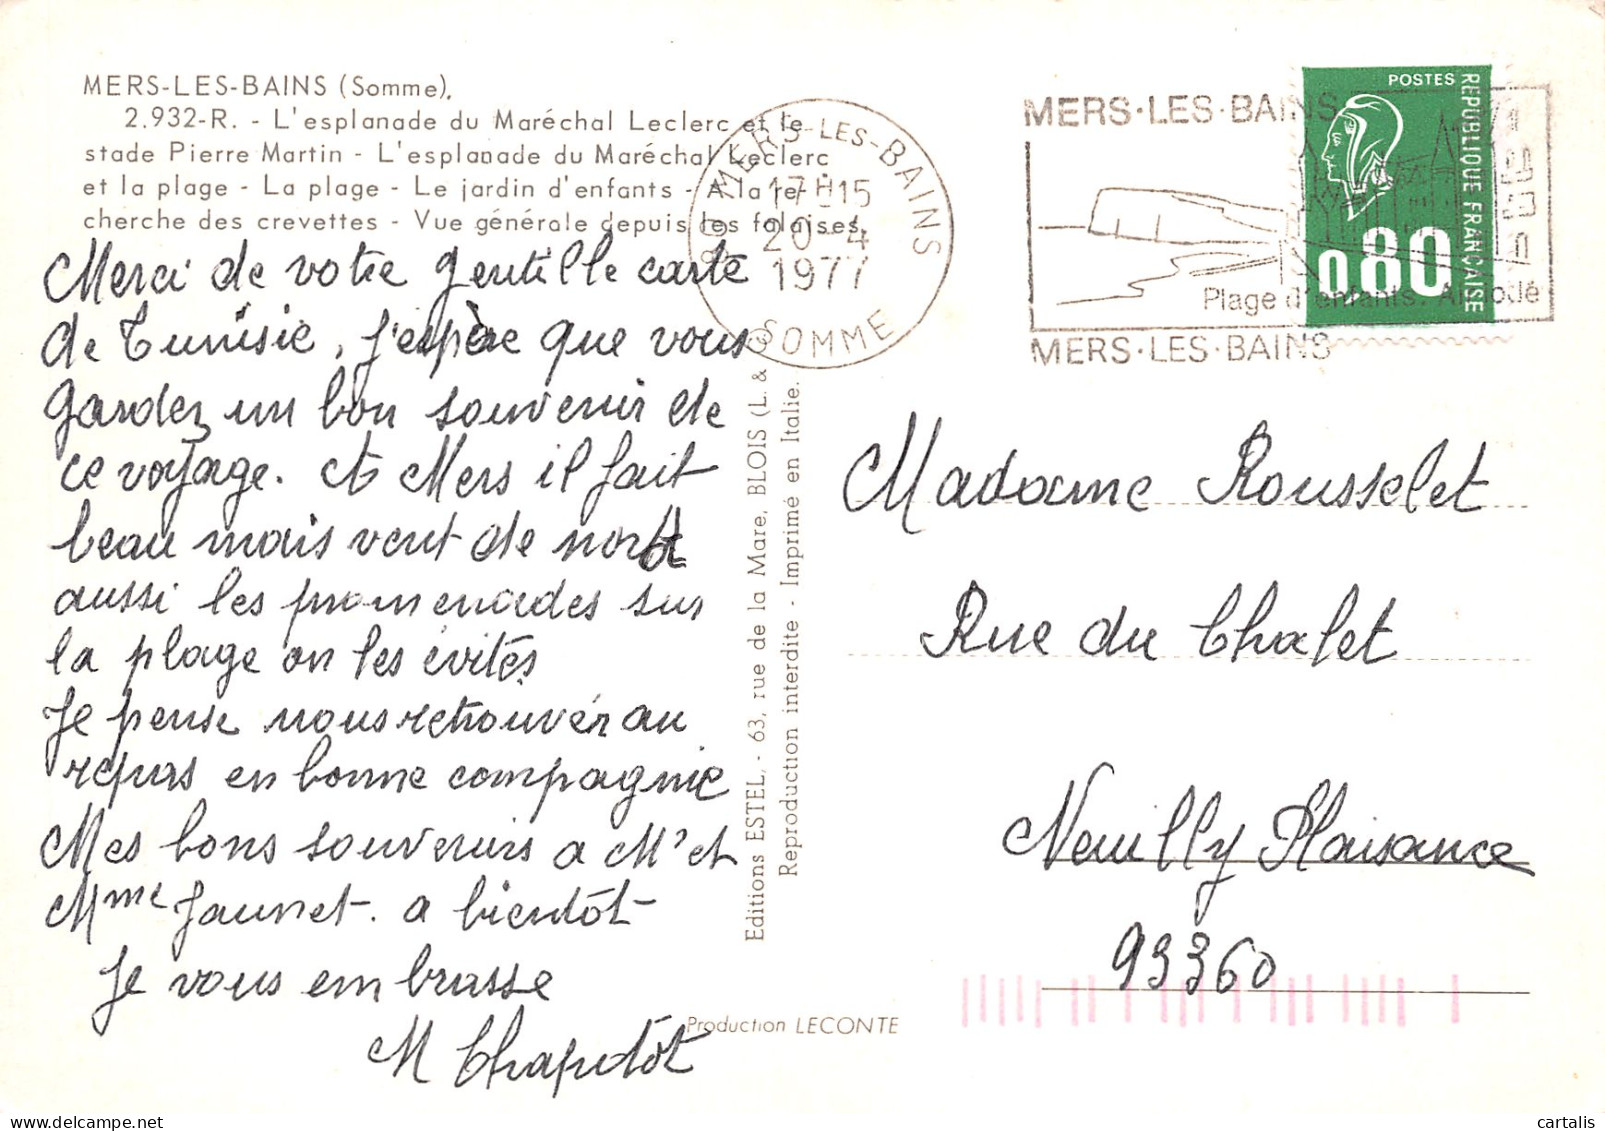 MERS-LES-BAINS (Somme).
2.932-R. - L'esplanade du Maréchal Leclerc et le
stade Pierre Martin - L'esplanade du Maréchal Leclerc
et la plage - La plage - Le jardin d'enfants - A la re-
cherche des crevettes - Vue générale depuis les falaises.
Merci de votre gentille carte
de Tunisie, j'espère que vous
gardez un bon souvenir de
ce voyage. A Mers il fait
beau mais vent de nord
aussi les promenades sur
la plage on les évités
Je pense nous retrouvér au
repas en bonne compagnie
Mes bons souvenirs a Mr et
Mme Jaunet. a bientôt
Je vous embrasse
M Chapotôt
Editions ESTEL, - 63, rue de la Mare, BLOIS (L. &
Reproduction interdite - Imprimé en Italie.
Production LECONTE
80 MERS-LES-BAINS
17H15
20-4
1977
SOMME
MERS·LES·BAINS
Plage d'enfants.
MERS·LES·BAINS
POSTES
REPUBLIQUE FRANÇAISE
0,80
Madame Rousselet
Rue du Chalet
Neuilly Plaisance
93360
cartalis